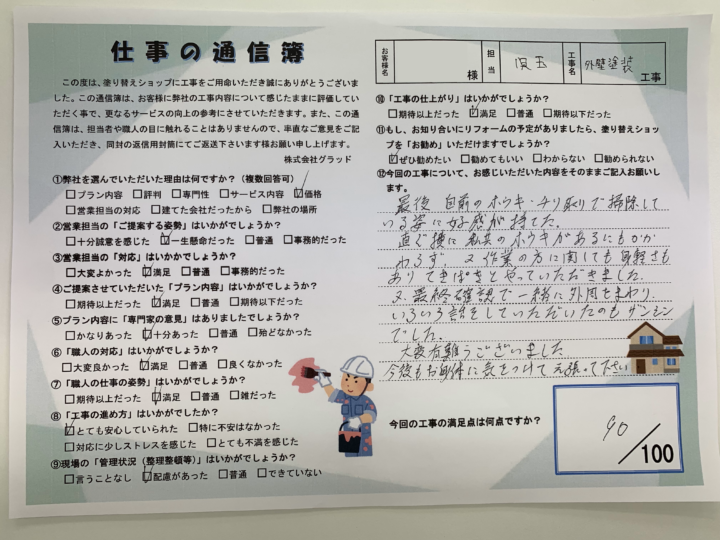 仕事の通信簿
この度は、塗り替えショップに工事をご用命いただき誠にありがとうございま
した。この通信簿は、お客様に弊社の工事内容について感じたままに評価してい
ただく事で、更なるサービスの向上の参考にさせていただきます。また、この通
信簿は、担当者や職人の目に触れることはありませんので、率直なご意見をご記
入いただき、同封の返信用封筒にてご返送下さいます様お願い申し上げます。
株式会社グラッド
①弊社を選んでいただいた理由は何ですか?(複数回答可)
□プラン内容 □評判 □専門性 □サービス内容 ☑価格
□営業担当の対応 □建てた会社だったから □弊社の場所
②営業担当の「ご提案する姿勢」はいかがでしょうか?
□十分誠意を感じた ☑一生懸命だった □普通 □事務的だった
③営業担当の「対応」はいかかでしょうか?
□大変よかった ☑満足 □普通 □事務的だった
④ご提案させていただいた「プラン内容」はいかがでしょうか?
□期待以上だった ☑満足 □普通 □期待以下だった
⑤プラン内容に「専門家の意見」はありましたでしょうか?
□かなりあった ☑十分あった □普通 □殆どなかった
⑥「職人の対応」はいかがでしょうか?
□大変良かった ☑満足 □普通 □良くなかった
⑦「職人の仕事の姿勢」はいかがでしょうか?
□期待以上だった ☑満足 □普通 □雑だった
⑧「工事の進め方」はいかがでしたか?
☑とても安心していられた □特に不安はなかった
□対応に少しストレスを感じた □とても不満を感じた
⑨現場の「管理状況(整理整頓等)」はいかがでしょうか?
□言うことなし ☑配慮があった □普通 □できていない
お客様名 様 担当 児玉 工事名 外壁塗装 工事
⑩「工事の仕上がり」はいかがでしょうか?
□期待以上だった ☑満足 □普通 □期待以下だった
⑪もし、お知り合いにリフォームの予定がありましたら、塗り替えショッ
プを「お勧め」いただけますでしょうか?
☑ぜひ勧めたい □勧めてもいい □わからない □勧められない
⑫今回の工事について、お感じいただいた内容をそのままご記入お願いし
ます。
最後 自前のホウキ・チリ取りで掃除して
いる姿に好感が持てた。
直ぐ横に私共のホウキがあるにもかか
わらず。又作業の方に関しても身軽さも
ありてきぱきとやっていただきました。
又最終確認で一緒に外周をまわり
いろいろ話をしていただいたのもザンシン
でした。
大変有難うございました
今後もお身体に気をつけて元張って下さい
今回の工事の満足点は何点ですか?
90
/100